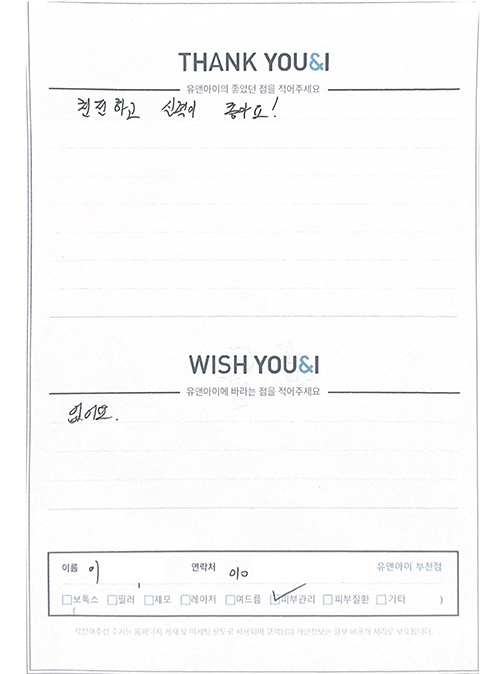 THANK YOU&I
유앤아이의 좋았던 점을 적어주세요
친절하고 실력이 좋아요!
WISH YOU&I
유앤아이에 바라는 점을 적어주세요
없어요.
이름 이 연락처 010 유앤아이 부천점
보톡스 필러 제모 레이저 여드름 피부관리 피부질환 기타
( )
작성해주신 후기는 홈페이지 게재 및 마케팅 용도로 사용되며 고객님의 개인정보는 일부 비공개 처리로 보호됩니다.